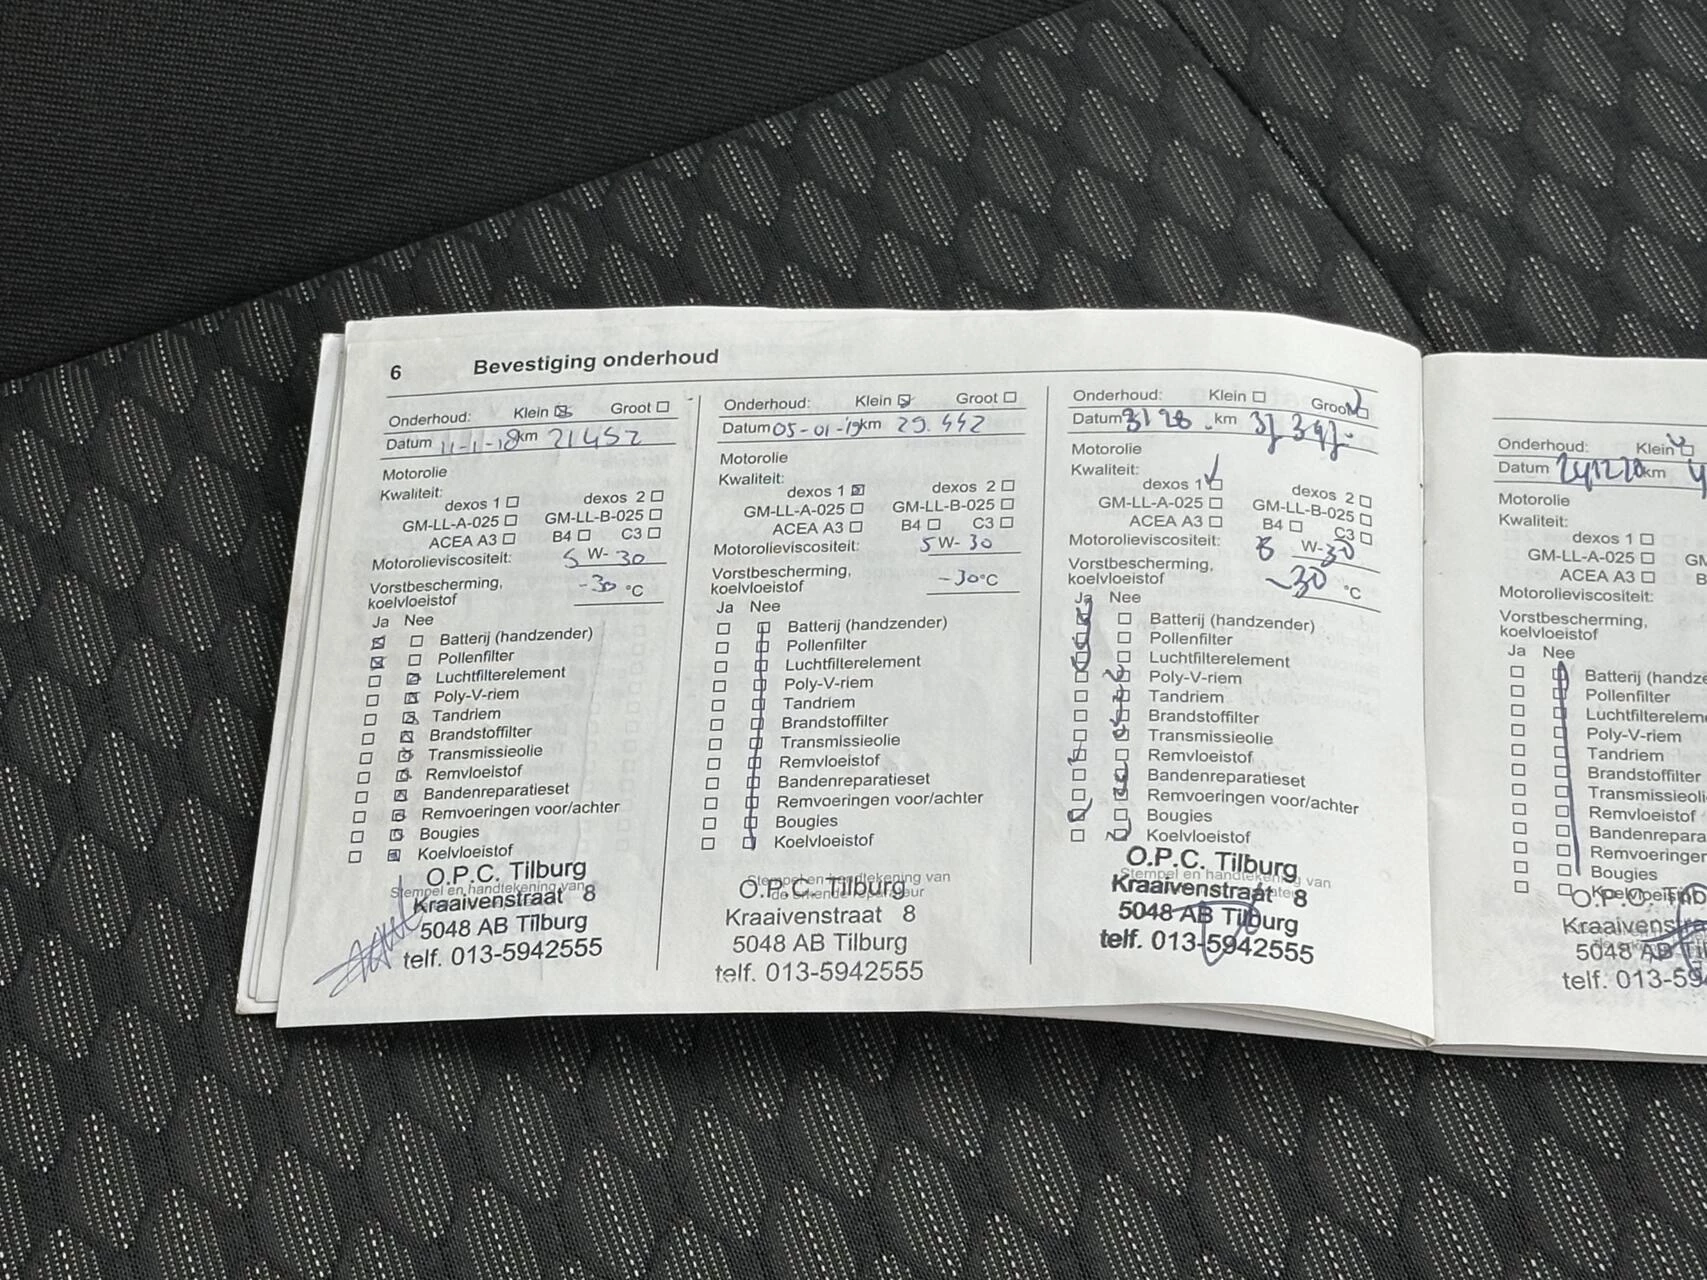 6 Bevestiging onderhoud
Onderhoud: Klein Groot
Datum 11-11-18 km 21452
Motorolie
Kwaliteit:
dexos 1 dexos 2
GM-LL-A-025 GM-LL-B-025
ACEA A3 B4 C3
Motorolieviscositeit: 5 W- 30
Vorstbescherming,
koelvloeistof -30 °C
Ja Nee
Batterij (handzender)
Pollenfilter
Luchtfilterelement
Poly-V-riem
Tandriem
Brandstoffilter
Transmissieolie
Remvloeistof
Bandenreparatieset
Remvoeringen voor/achter
Bougies
Koelvloeistof
O.P.C. Tilburg
Stempel en handtekening van
Kraaivenstraat 8
5048 AB Tilburg
telf. 013-5942555
Onderhoud: Klein Groot
Datum 05-01-19 km 29.442
Motorolie
Kwaliteit:
dexos 1 dexos 2
GM-LL-A-025 GM-LL-B-025
ACEA A3 B4 C3
Motorolieviscositeit: 5 W- 30
Vorstbescherming,
koelvloeistof -30 °C
Ja Nee
Batterij (handzender)
Pollenfilter
Luchtfilterelement
Poly-V-riem
Tandriem
Brandstoffilter
Transmissieolie
Remvloeistof
Bandenreparatieset
Remvoeringen voor/achter
Bougies
Koelvloeistof
Stempel en handtekening van
O.P.C. Tilburg
de erkende reparateur
Kraaivenstraat 8
5048 AB Tilburg
telf. 013-5942555
Onderhoud: Klein Groot
Datum km
Motorolie
Kwaliteit:
dexos 1 dexos 2
GM-LL-A-025 GM-LL-B-025
ACEA A3 B4 C3
Motorolieviscositeit: W-30
Vorstbescherming,
koelvloeistof -30 °C
Ja Nee
Batterij (handzender)
Pollenfilter
Luchtfilterelement
Poly-V-riem
Tandriem
Brandstoffilter
Transmissieolie
Remvloeistof
Bandenreparatieset
Remvoeringen voor/achter
Bougies
Koelvloeistof
O.P.C. Tilburg
Stempel en handtekening van
Kraaivenstraat 8
5048 AB Tilburg
telf. 013-5942555
Onderhoud: Klein
Datum km
Motorolie
Kwaliteit:
dexos 1
GM-LL-A-025 GM
ACEA A3 B
Motorolieviscositeit:
Vorstbescherming,
koelvloeistof
Ja Nee
Batterij (handze
Pollenfilter
Luchtfilterelem
Poly-V-riem
Tandriem
Brandstoffilter
Transmissieoli
Remvloeistof
Bandenrepara
Remvoeringen
Bougies
Koelvloeistof
O.P.C. Tilb
Kraaivenstra
5048 AB Til
telf. 013-59